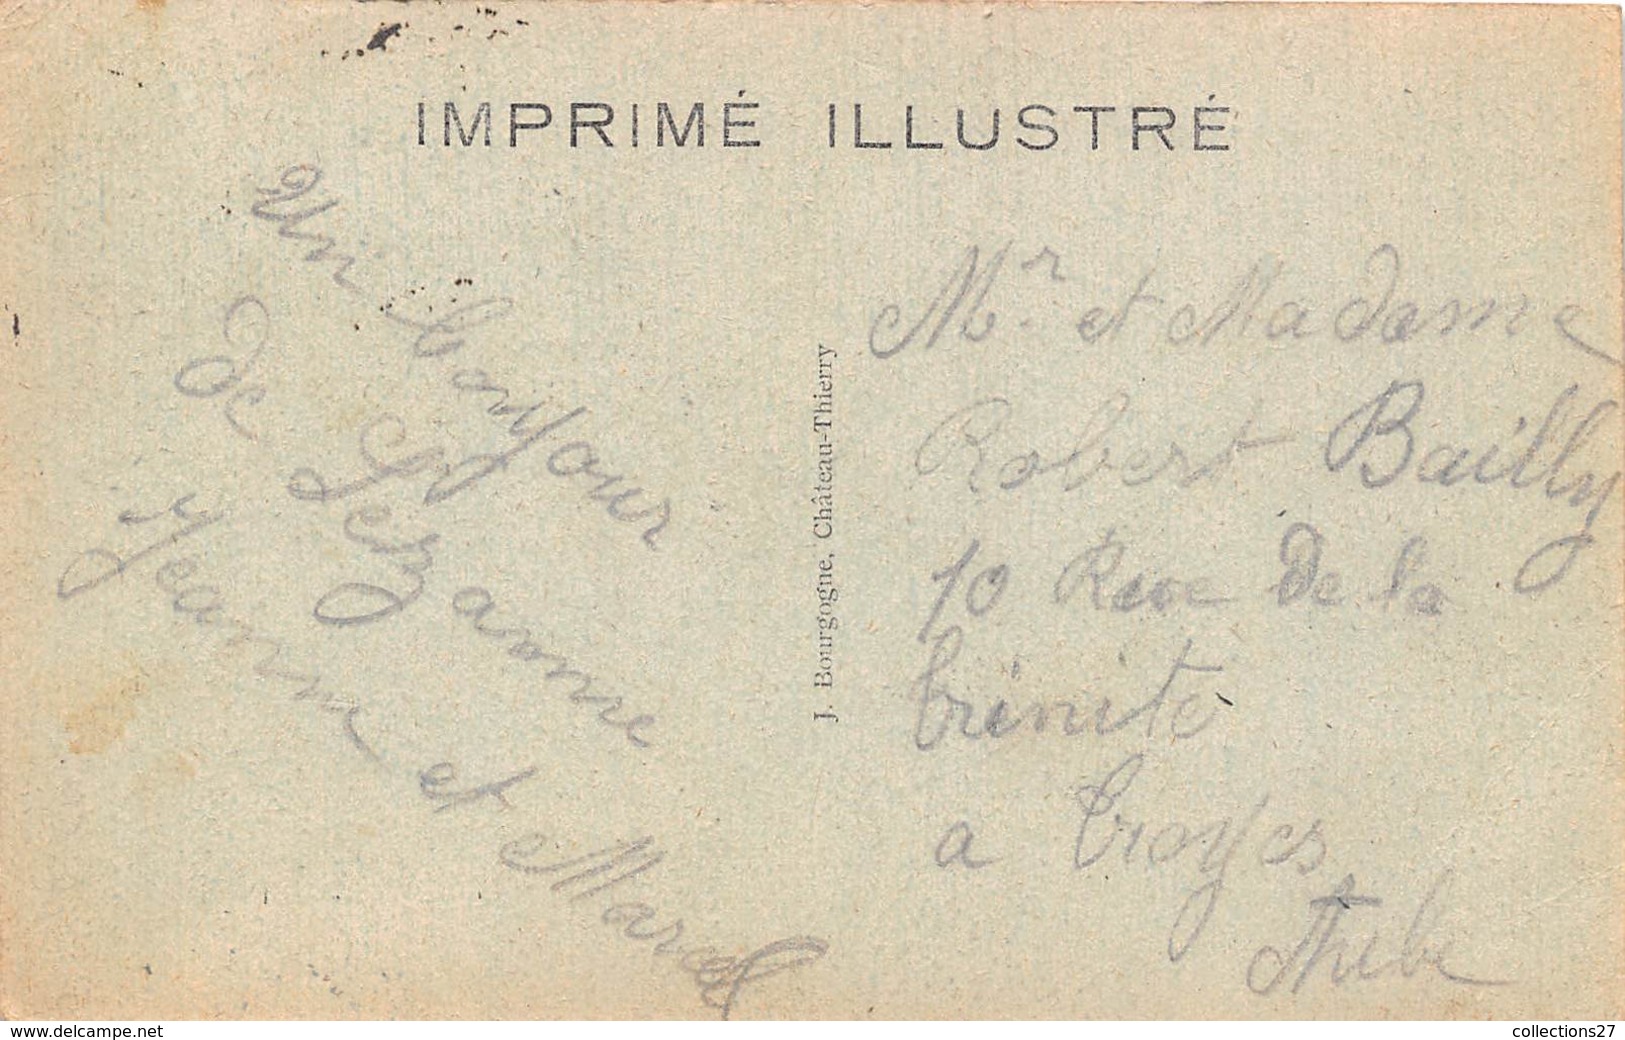 IMPRIMÉ ILLUSTRÉ
Un bonjour
de Sezanne
Jeanne et Marcel
J. Bourgogne, Château-Thierry
Mr. et Madame
Robert Bailly
10 Rue de la
trinité
a troyes
Aube
www.delcampe.net
collections27